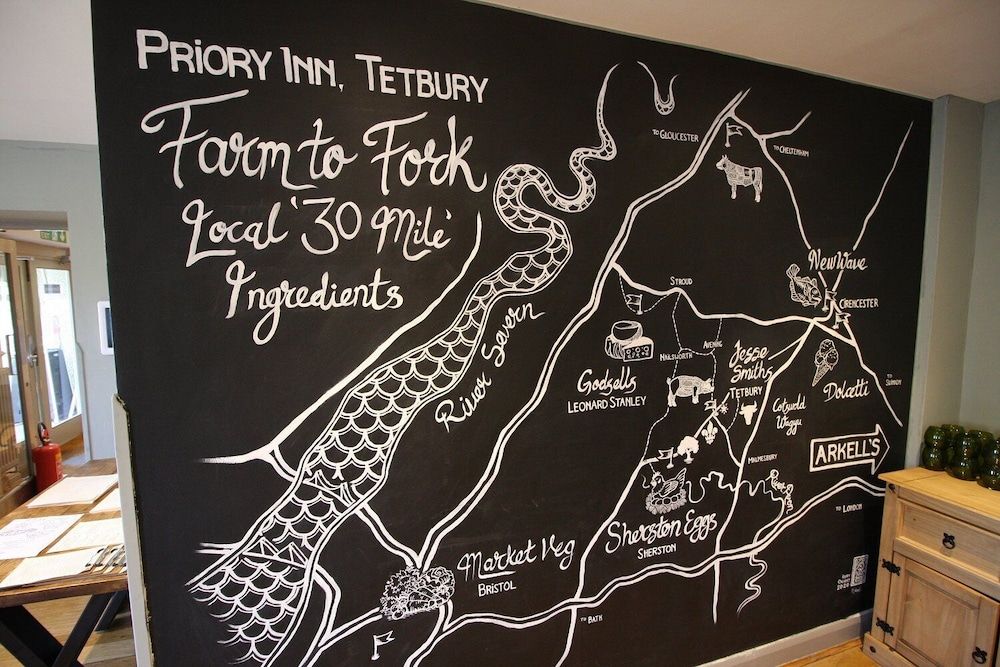 PRIORY INN, TETBURY
Farm to Fork
Local '30 Mile'
Ingredients
TO GLOUCESTER
TO CHELTENHAM
New Wave
CIRENCESTER
STROUD
River Severn
AVENING
NAILSWORTH
Godsells
LEONARD STANLEY
Jesse
Smiths
TETBURY
Cotswold
Wagyu
Dolcetti
TO
SWINDON
ARKELL'S
MALMESBURY
TO LONDON
Sherston Eggs
SHERSTON
Market Veg
BRISTOL
TO BATH